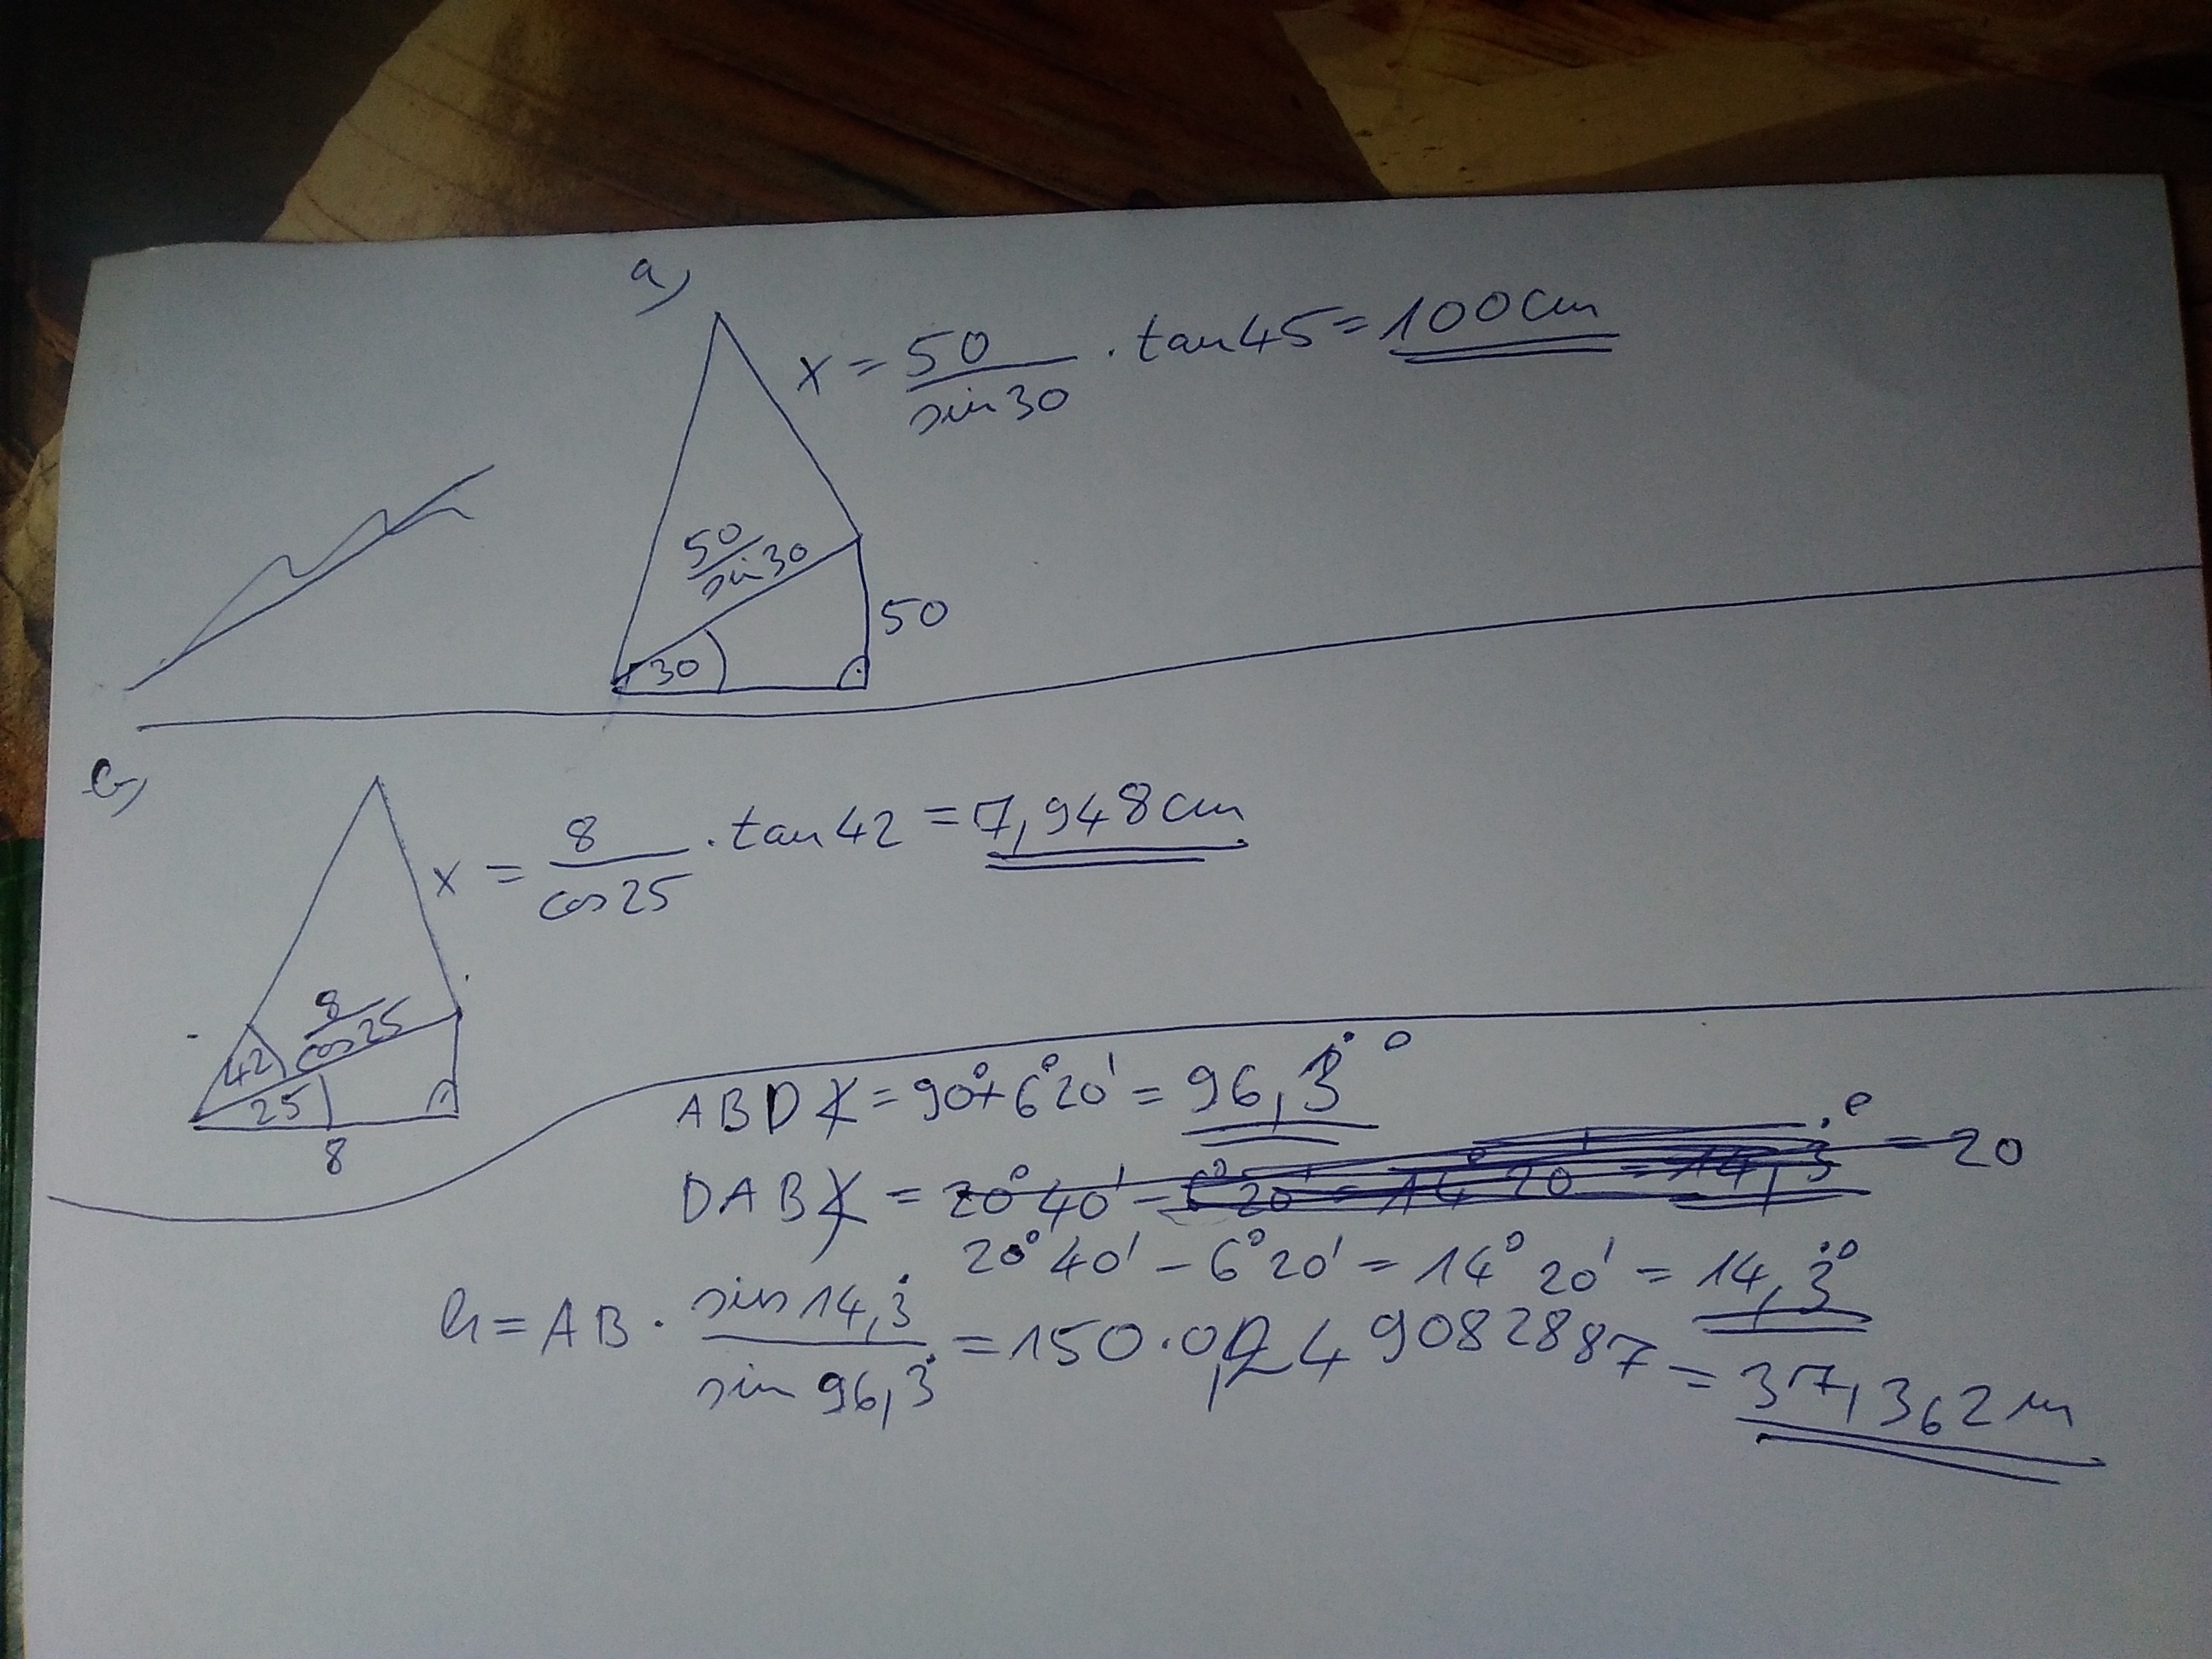 a)
x = 50/sin30 · tan45 = 100cm
50/sin30
50
30
b)
x = 8/cos25 · tan42 = 7,948cm
8/cos25
42
25
8
ABD∢ = 90°+6°20' = 96,3̇°
DAB∢ = = 20
20°40' - 6°20' = 14°20' = 14,3̇°
h = AB · sin14,3̇/sin96,3̇ = 150·0,249082887 = 37,362m